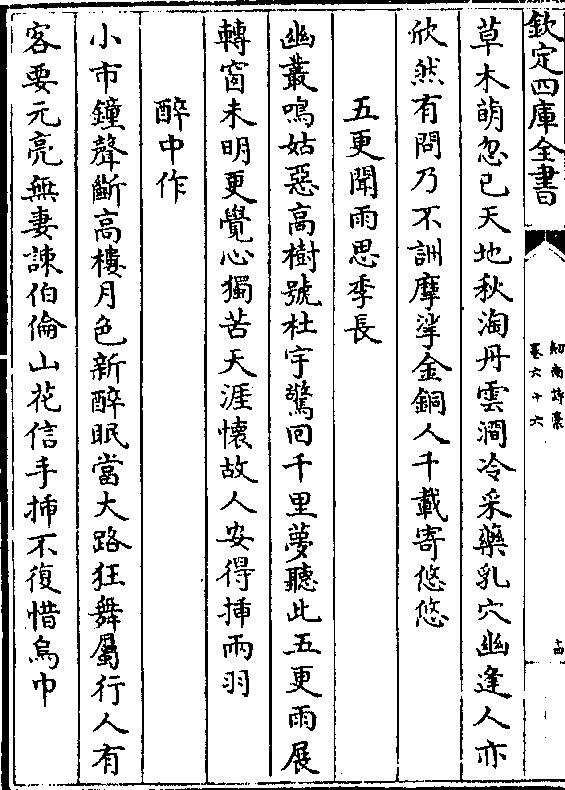 欽定四庫全書
劍南詩藁
卷六十六
十四
草木萌忽已天地秋淘丹雲澗冷采藥乳穴幽逢人亦
欣然有問乃不詶摩挲金銅人千載寄悠悠
五更聞雨思季長
幽叢鳴姑惡高樹號杜宇驚回千里夢聽此五更雨展
轉窗未明更覺心獨苦天涯懷故人安得揷兩羽
醉中作
小市鐘聲斷高樓月色新醉眠當大路狂舞屬行人有
客要元亮無妻諌伯倫山花信手揷不復惜烏巾